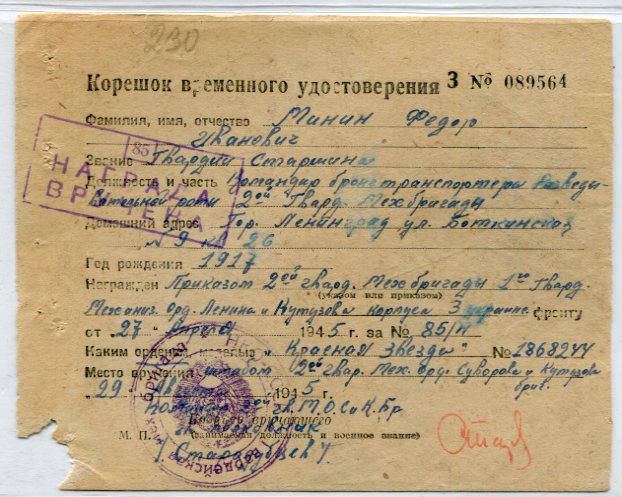 230
Корешок временного удостоверения З № 089564
Фамилия, имя, отчество Минин Федор
Иванович
85
НАГРАДА
ВРУЧЕНА
Звание Гвардии Старшина
Должность и часть Командир бронетранспортера Разведы-
вательной роты 2ой Гвард. Мехбригады
Домашний адрес Гор. Ленинград ул. Боткинская
№ 9 кв 26
Год рождения 1917
Награжден Приказом 2ой гвард. Мехбригады 1го Гвард.
(указом или приказом)
Механиз. Орд. Ленина и Кутузова корпуса 3 украинс. фронту
от „27 “ Апреля 1945 г. за № 85/н
Каким орденом, медалью „Красная Звезда“ № 1868244
Место вручения 2ой гвар. Мех. орд. Суворова и Кутузова
бриг.
„29 “ 1945 г.
2ой гв. М.О.С и К. Бр
М. П. (занимаемая должность и военное звание)